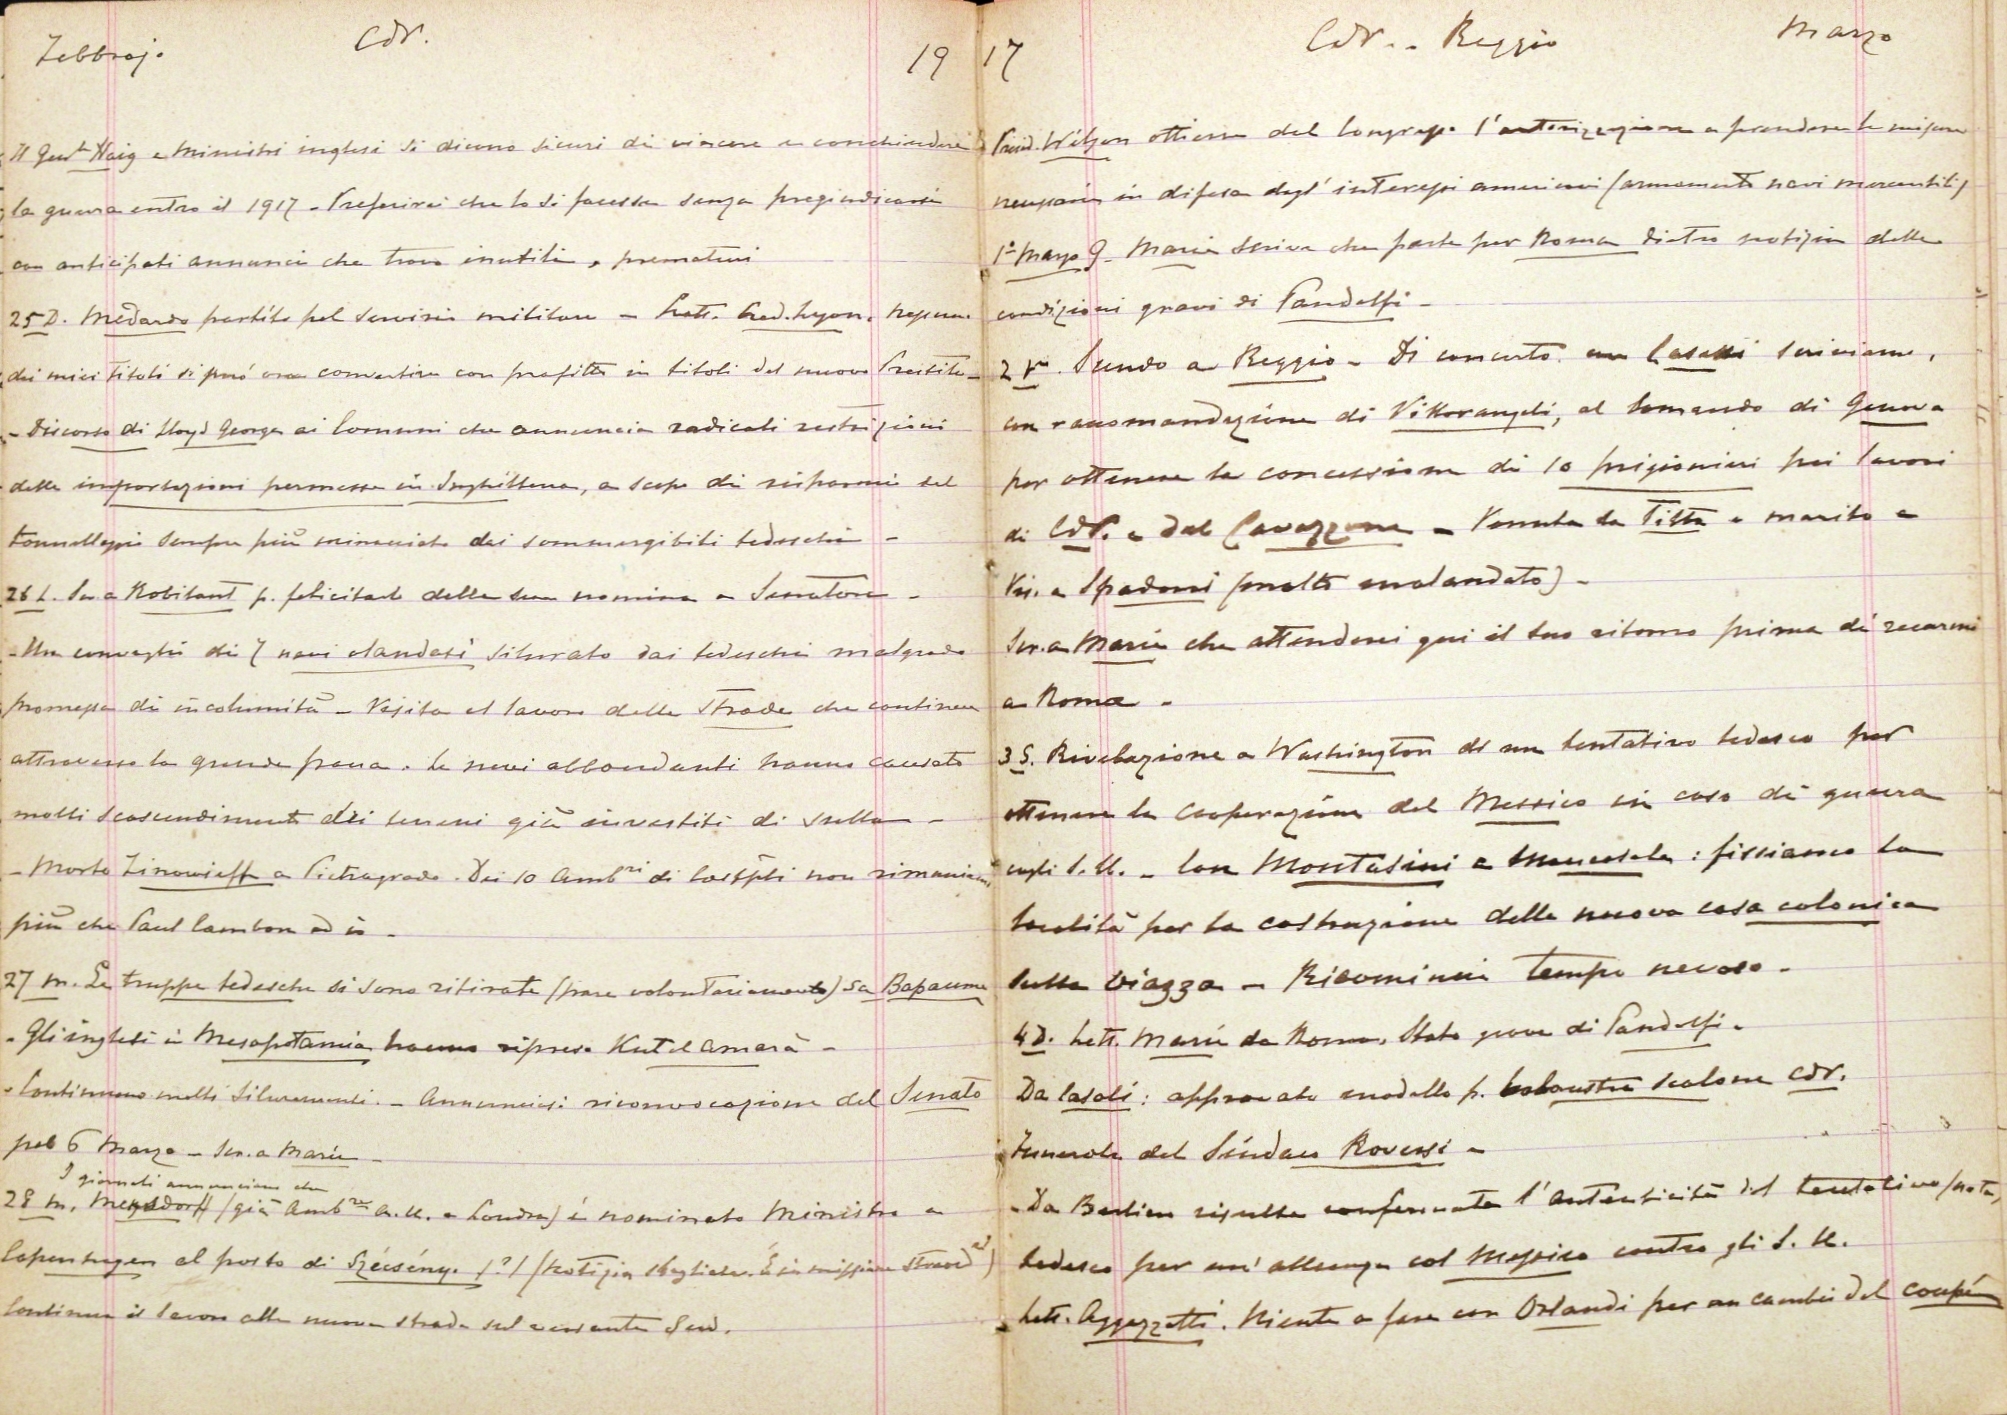 Febbrajo CdV. 19
Il Gen.le Haig e Ministri inglesi si dicono sicuri di vincere e conchiudere
la guerra entro il 1917 - Preferirei che lo si facesse senza pregiudicarsi
con anticipati annunci che trovo inutili e prematuri
25 D. Medardo partito pel servizio militare - Lett. Cred. Lyon.
dei miei titoli si può ora convertire con profitto in titoli del nuovo Prestito -
- Discorso di Lloyd George ai Comuni che annuncia radicali restrizioni
delle importazioni permesse in Inghilterra, a scopo di risparmio del
tonnellaggio sempre più minacciato dai sommergibili tedeschi -
26 L. Scr. a Robilant p. felicitarlo della sua nomina a Senatore -
- Un convoglio di 7 navi olandesi silurato dai tedeschi malgrado
promessa di incolumità - Visita al lavoro delle Strade che continua
attraverso la grande frana. Le nevi abbondanti hanno causato
molti scoscendimenti dei terreni già investiti di sulla -
- Morto Zinowieff a Pietrogrado. Dei 10 Amb.ri di Cost.pli non rimaniamo
più che Paul Cambon ed io -
27 M. Le truppe tedesche si sono ritirate (pare volontariamente) da Bapaume
- Gli inglesi in Mesopotamia hanno ripreso Kut el Amara -
- Continuano molti siluramenti. - Annunciasi riconvocazione del Senato
pel 6 Marzo - Scr. a Maria -
I giornali annunciano che
28 M. Mensdorff (già Amb.re A.U. a Londra) è nominato Ministro a
Copenhagen al posto di Szécsény. (?) (Notizia sbagliata. È in missione straord.a)
Continua il lavoro alla nuova strada sul versante Sud.
17 CdV. - Reggio Marzo
Presid. Wilson ottiene dal Congresso l'autorizzazione a prendere le misure
necessarie in difesa degl'interessi americani (armamento navi mercantili)
1° Marzo G. Maria scrive che parte per Roma dietro notizia delle
condizioni gravi di Pandolfi -
2 V. Scendo a Reggio - Di concerto con Casali scriviamo,
con raccomandazione di Vittorangeli, al Comando di Genova
per ottenere la concessione di 10 prigionieri pei lavori
di CdV. e del Cavazzone - Venuta la Titta e marito a
Vis. a Spadoni (molto malandato) -
Scr. a Maria che attenderei qui il suo ritorno prima di recarmi
a Roma -
3 S. Rivelazione a Washington di un tentativo tedesco per
ottenere la cooperazione del Messico in caso di guerra
cogli S.U. - Con Montasini a : fissiamo la
località per la costruzione della nuova casa colonica
sulla Viazza - Ricomincia tempo nevoso -
4 D. Lett. Maria da Roma. Stato grave di Pandolfi -
Da Casoli: approvato modello p. balaustra scalone CdV.
Funerale del Sindaco Roversi -
- Da Berlino risulta confermata l'autenticità del tentativo (nota)
tedesco per un'alleanza col Messico contro gli S.U.
- Lett. Aggazzotti. Niente a fare con Orlandi per un cambio del coupé